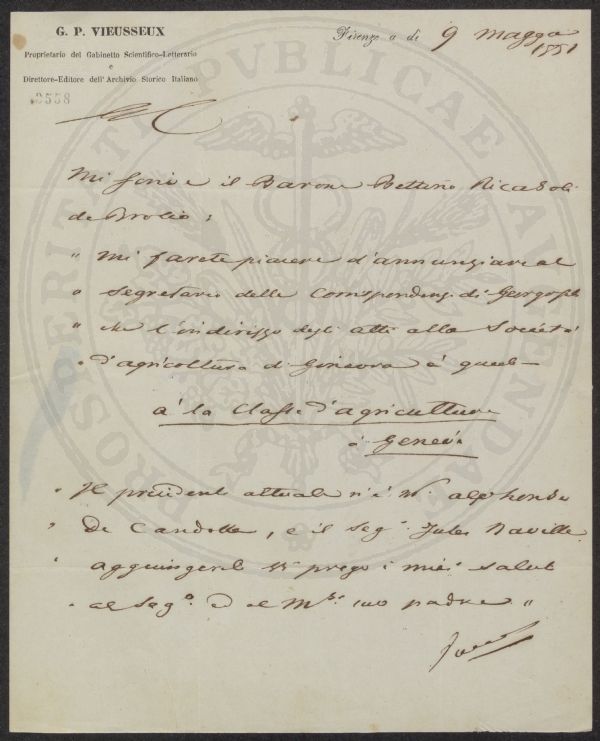 G. P. VIEUSSEUX
Proprietario del Gabinetto Scientifico-Letterario
e
Direttore-Editore dell'Archivio Storico Italiano
Firenze a dì 9 maggio
1851
Mi scrive il Barone Bettino Ricasoli
da Brolio:
" mi farete piacere d'annunziare al
" Segretario delle Corrispondenze di Georgofili
" che l'indirizzo degli atti alla Società
" d'agricoltura di Ginevra è questo
à la Classe d'agriculture
à Genève
" Il presidente attuale n'è M. alphonse
" De Candolle, e il Seg. Jules Naville.
" aggiungerete vi prego i miei saluti
" al Seg.o e al M.se suo padre "
PROSPERITATI PUBLICAE AUGENDAE